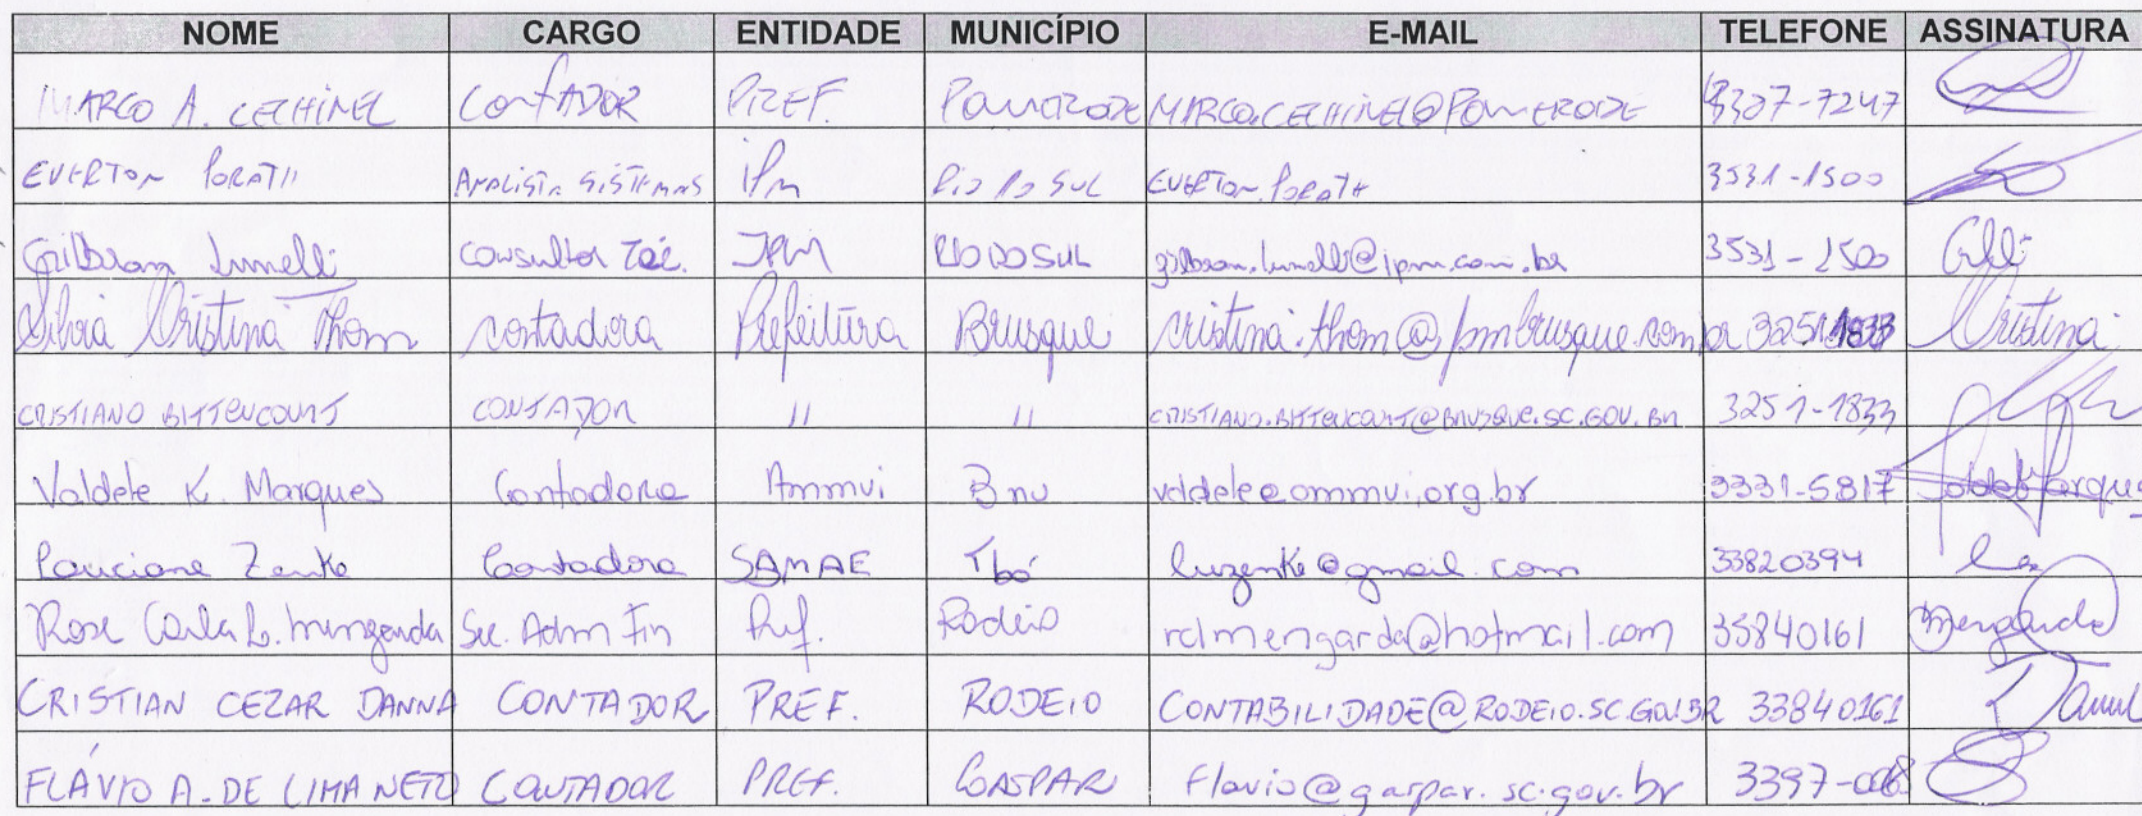 NOME CARGO ENTIDADE MUNICÍPIO E-MAIL TELEFONE ASSINATURA
MARCO A. CECHINEL CONTADOR PREF. POMERODE MARCO.CECHINEL@POMERODE 3387-7247
EVERTON PORATH ANALISTA SISTEMAS IPM RIO DO SUL EVERTON.PORATH 3531-1500
Gilbran Lunelli Consultor Téc. IPM RIO DO SUL gilbran.lunelli@ipm.com.br 3531-1500
Silvia Cristina Thom Contadora Prefeitura Brusque cristina.thom@pmbrusque.com.br 3251 1833 Cristina
CRISTIANO BITTENCOURT CONTADOR 11 11 CRISTIANO.BITTENCOURT@BRUSQUE.SC.GOV.BR 3251-1833
Valdete K. Marques Contadora Ammvi Bnu valdete@ammvi.org.br 3331-5817 Valdete Marques
Luciane Zenke Contadora SAMAE Tbó luzenke@gmail.com 33820394
Rose Carla L. Mengarda Sec. Adm Fin Pref. Rodeio rclmengarda@hotmail.com 33840161 Mengarda
CRISTIAN CEZAR DANNA CONTADOR PREF. RODEIO CONTABILIDADE@RODEIO.SC.GOV.BR 33840161
FLÁVIO A. DE LIMA NETO CONTADOR PREF. GASPAR flavio@gaspar.sc.gov.br